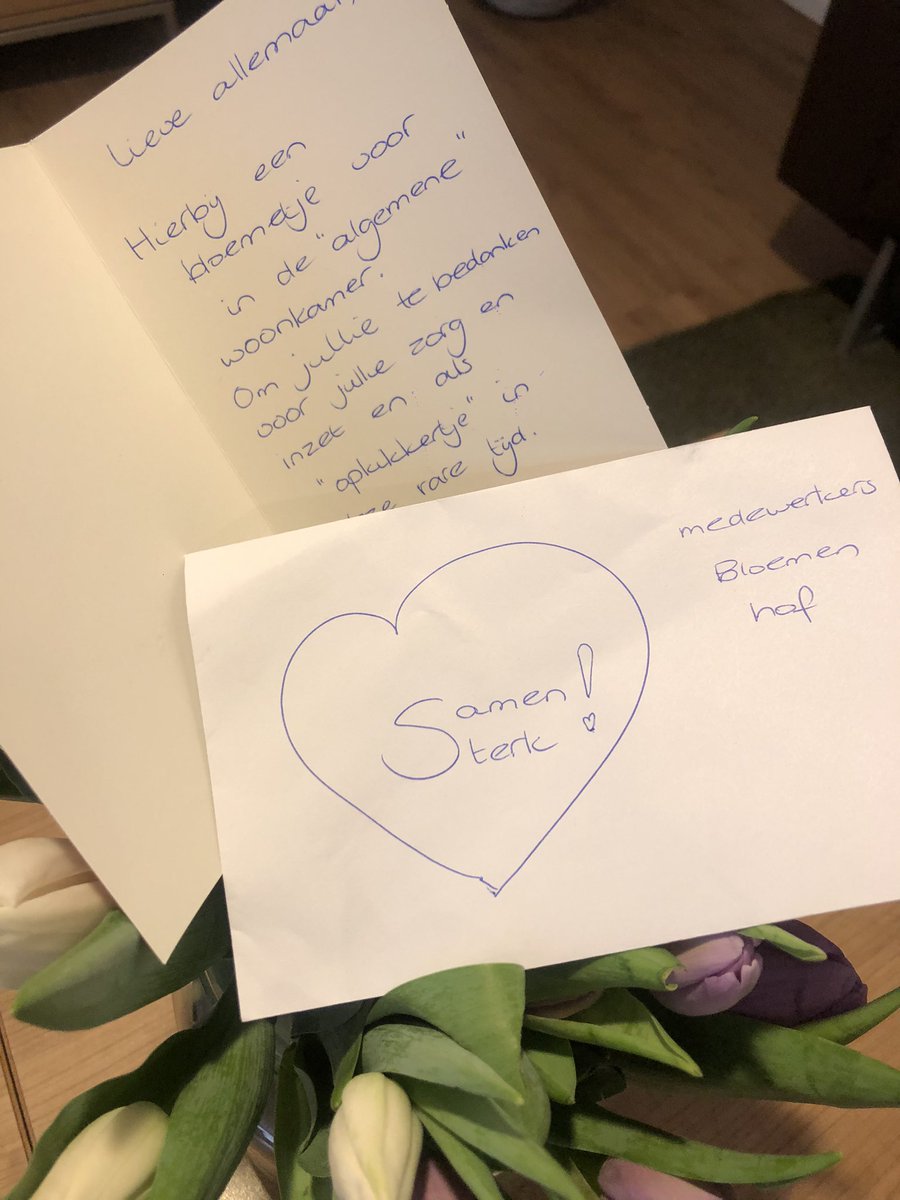 Lieve allemaal,
Hierbij een
bloemetje voor
in de "algemene"
woonkamer.
Om jullie te bedanken
voor jullie zorg en
inzet en als
"opkikkertje" in
deze rare tijd.
medewerkers
Bloemen
hof
Samen
Sterk!